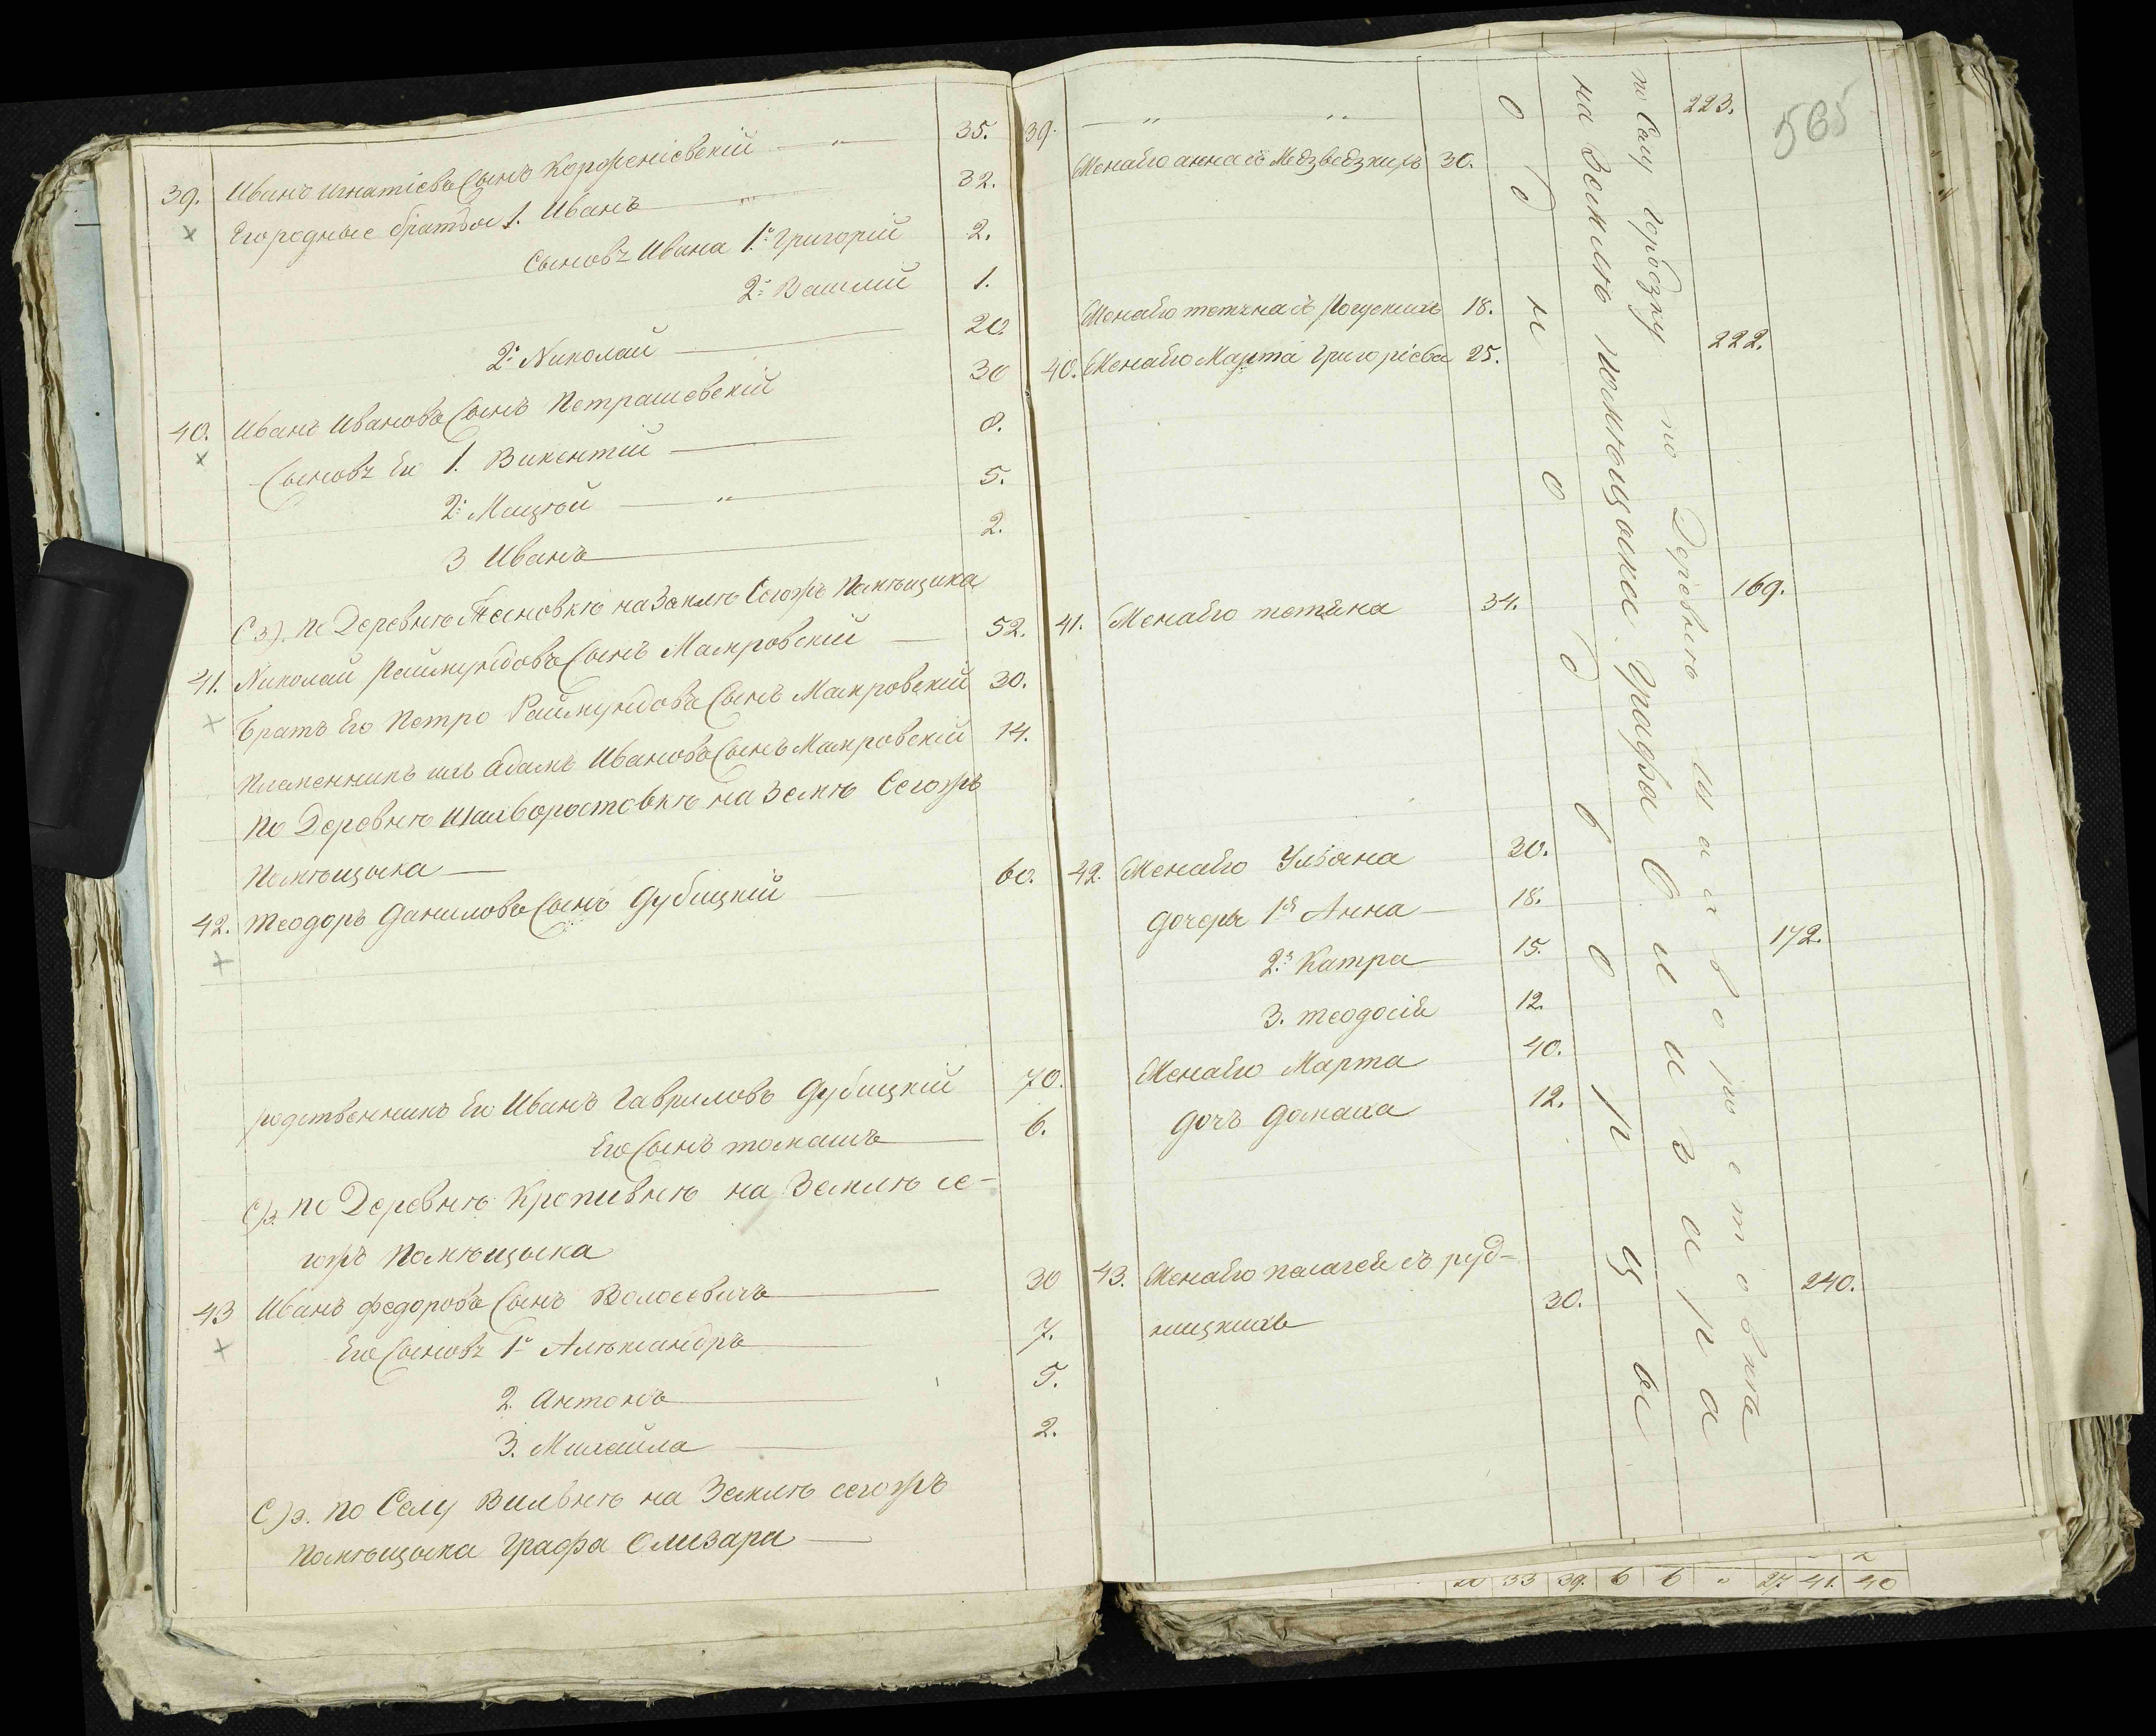 39. Иванъ Игнатіевъ Сынъ Корженіевскій — „ — 35.
Его родные братья 1. Иванъ — „ 32.
Сыновъ Ивана 1й Григорій 2.
2й Василій 1.
2й Николай — 20.
40. Иванъ Ивановъ Сынъ Петрашевскій 30
Сыновъ Его 1. Викентій — 8.
2й Мацѣй — „ — 5.
3 Иванъ — 2.
по Деревнѣ на Землѣ Сегожъ Помѣщика
41. Николай Раймундовъ Сынъ Макровскій — 52.
Братъ Его Петро Раймундовъ Сынъ Макровскій 30.
Племенникъ ихъ Адамъ Ивановъ Сынъ Макровскій 14.
по Деревнѣ Шаиворостовкѣ на Землѣ Сегожъ
Помѣщыка —
42. Теодоръ Даниловъ Сынъ Дубицкій — 60.
родственникъ Его Иванъ Гавриловъ Дубицкій 70.
Его Сынъ томашъ — 6.
по Деревнѣ Кропивнѣ на Землѣ се-
гожъ Помѣщыка
43 Иванъ федоровъ Сынъ Волосевичъ — 30
Его Сыновъ 1й Алѣксандръ — 7.
2. Антонъ — 5.
3. Михайла — 2.
по Селу Вильнѣ на Землѣ сегожъ
Помѣщыка Графа Олизара —
565
39. — „ „ 223.
Жена Его анна съ Медзведзкихъ 30.
Жена Его текла съ 18.
40. Жена Его Марта Григоріева 25. 222.
41. Жена Его текла 34. 169.
42. Жена Его Ульяна 30.
дочеры 1я Анна — 18.
2я Катра — 15. 172.
3. теодосія 12.
Жена Его Марта 40.
дочъ Домаха 12.
43. Жена Его пелагея съ руд-
ницкихъ 30. 240.
О д н о д в о р ц ы
на Землѣ помѣщыка Графа О л и з а р а
по Селу Городзку по Деревнѣ Ш а и в о р о с т о в к а
33 39. 6 6 „ 27 41. 40